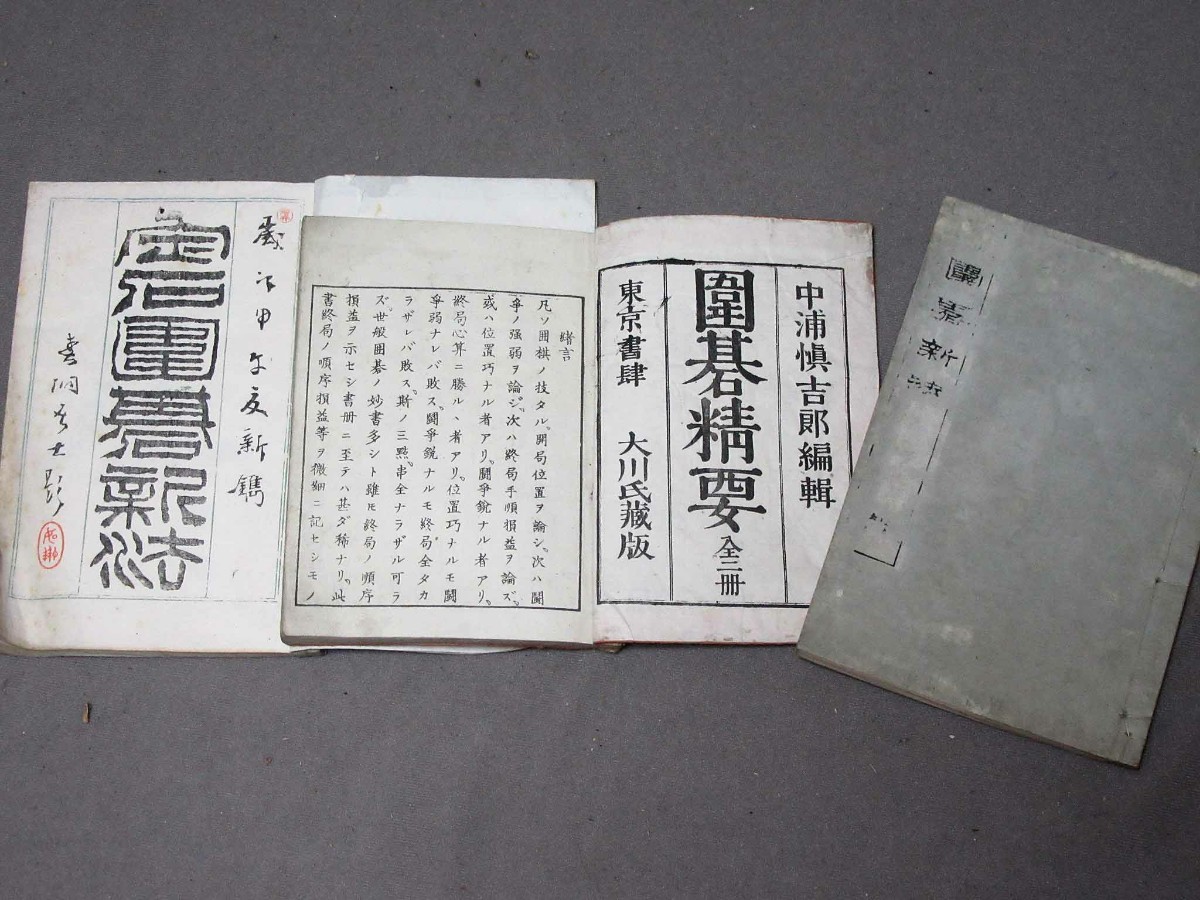 圍碁新法
中浦慎吉郎編輯
圍碁精要 全三冊
東京書肆 大川氏藏版
緒言
凡ソ囲棋ノ技タル。開局位置ヲ論シ。次ハ鬪
爭ノ强弱ヲ論ジ。次ハ終局手順損益ヲ論ズ。
或ハ位置巧ナル者アリ。鬪爭鋭ナル者アリ。
終局心算ニ勝ルヽ者アリ。位置巧ナルモ鬪
爭弱ナレバ敗ス。鬪爭鋭ナルモ終局全タカ
ラザレバ敗ス。斯ノ三點。串全ナラザル可ラ
ズ。世般囲碁ノ妙書多シト雖モ終局ノ順序
損益ヲ示セシ書冊ニ至テハ甚ダ稀ナリ。此
書終局ノ順序損益等ヲ微細ニ記セシモノ
歲次甲午夏新鐫
定石圍碁新法